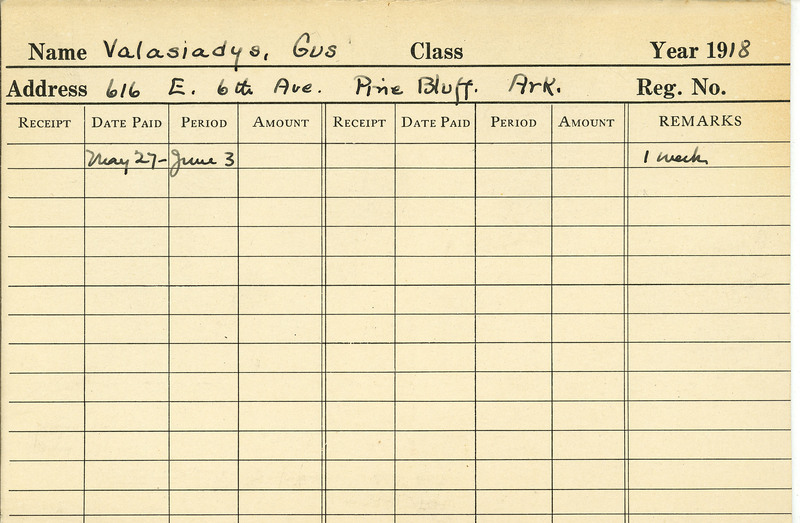 Name Valasiadys, Gus Class Year 1918
Address 616 E. 6th Ave. Pine Bluff. Ark. Reg. No.
RECEIPT DATE PAID PERIOD AMOUNT RECEIPT DATE PAID PERIOD AMOUNT REMARKS
May 27- June 3 1 week